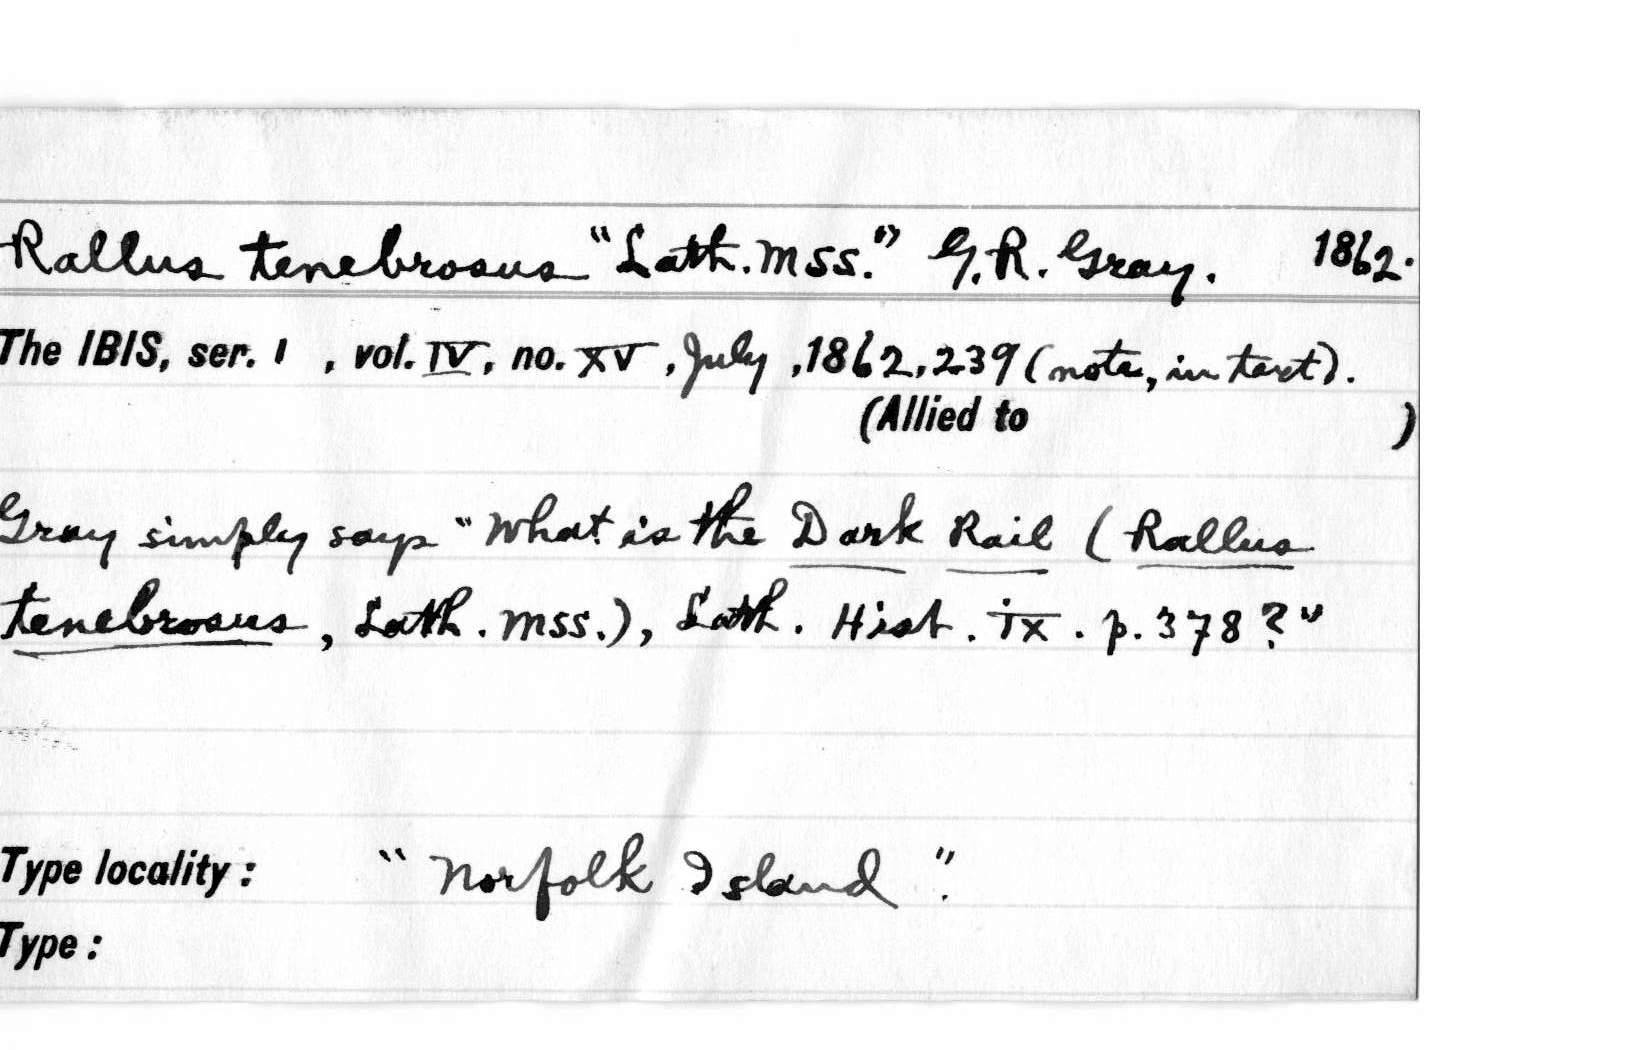 Rallus tenebrosus "Lath. Mss." G. R. Gray. 1862.
The IBIS, ser. 1 , vol. IV, no. XV , July , 1862, 239 (note, in text).
(Allied to )
Gray simply says "What is the Dark Rail (Rallus
tenebrosus, Lath. Mss.), Lath. Hist. ix. p. 378?"
Type locality: "Norfolk Island".
Type: